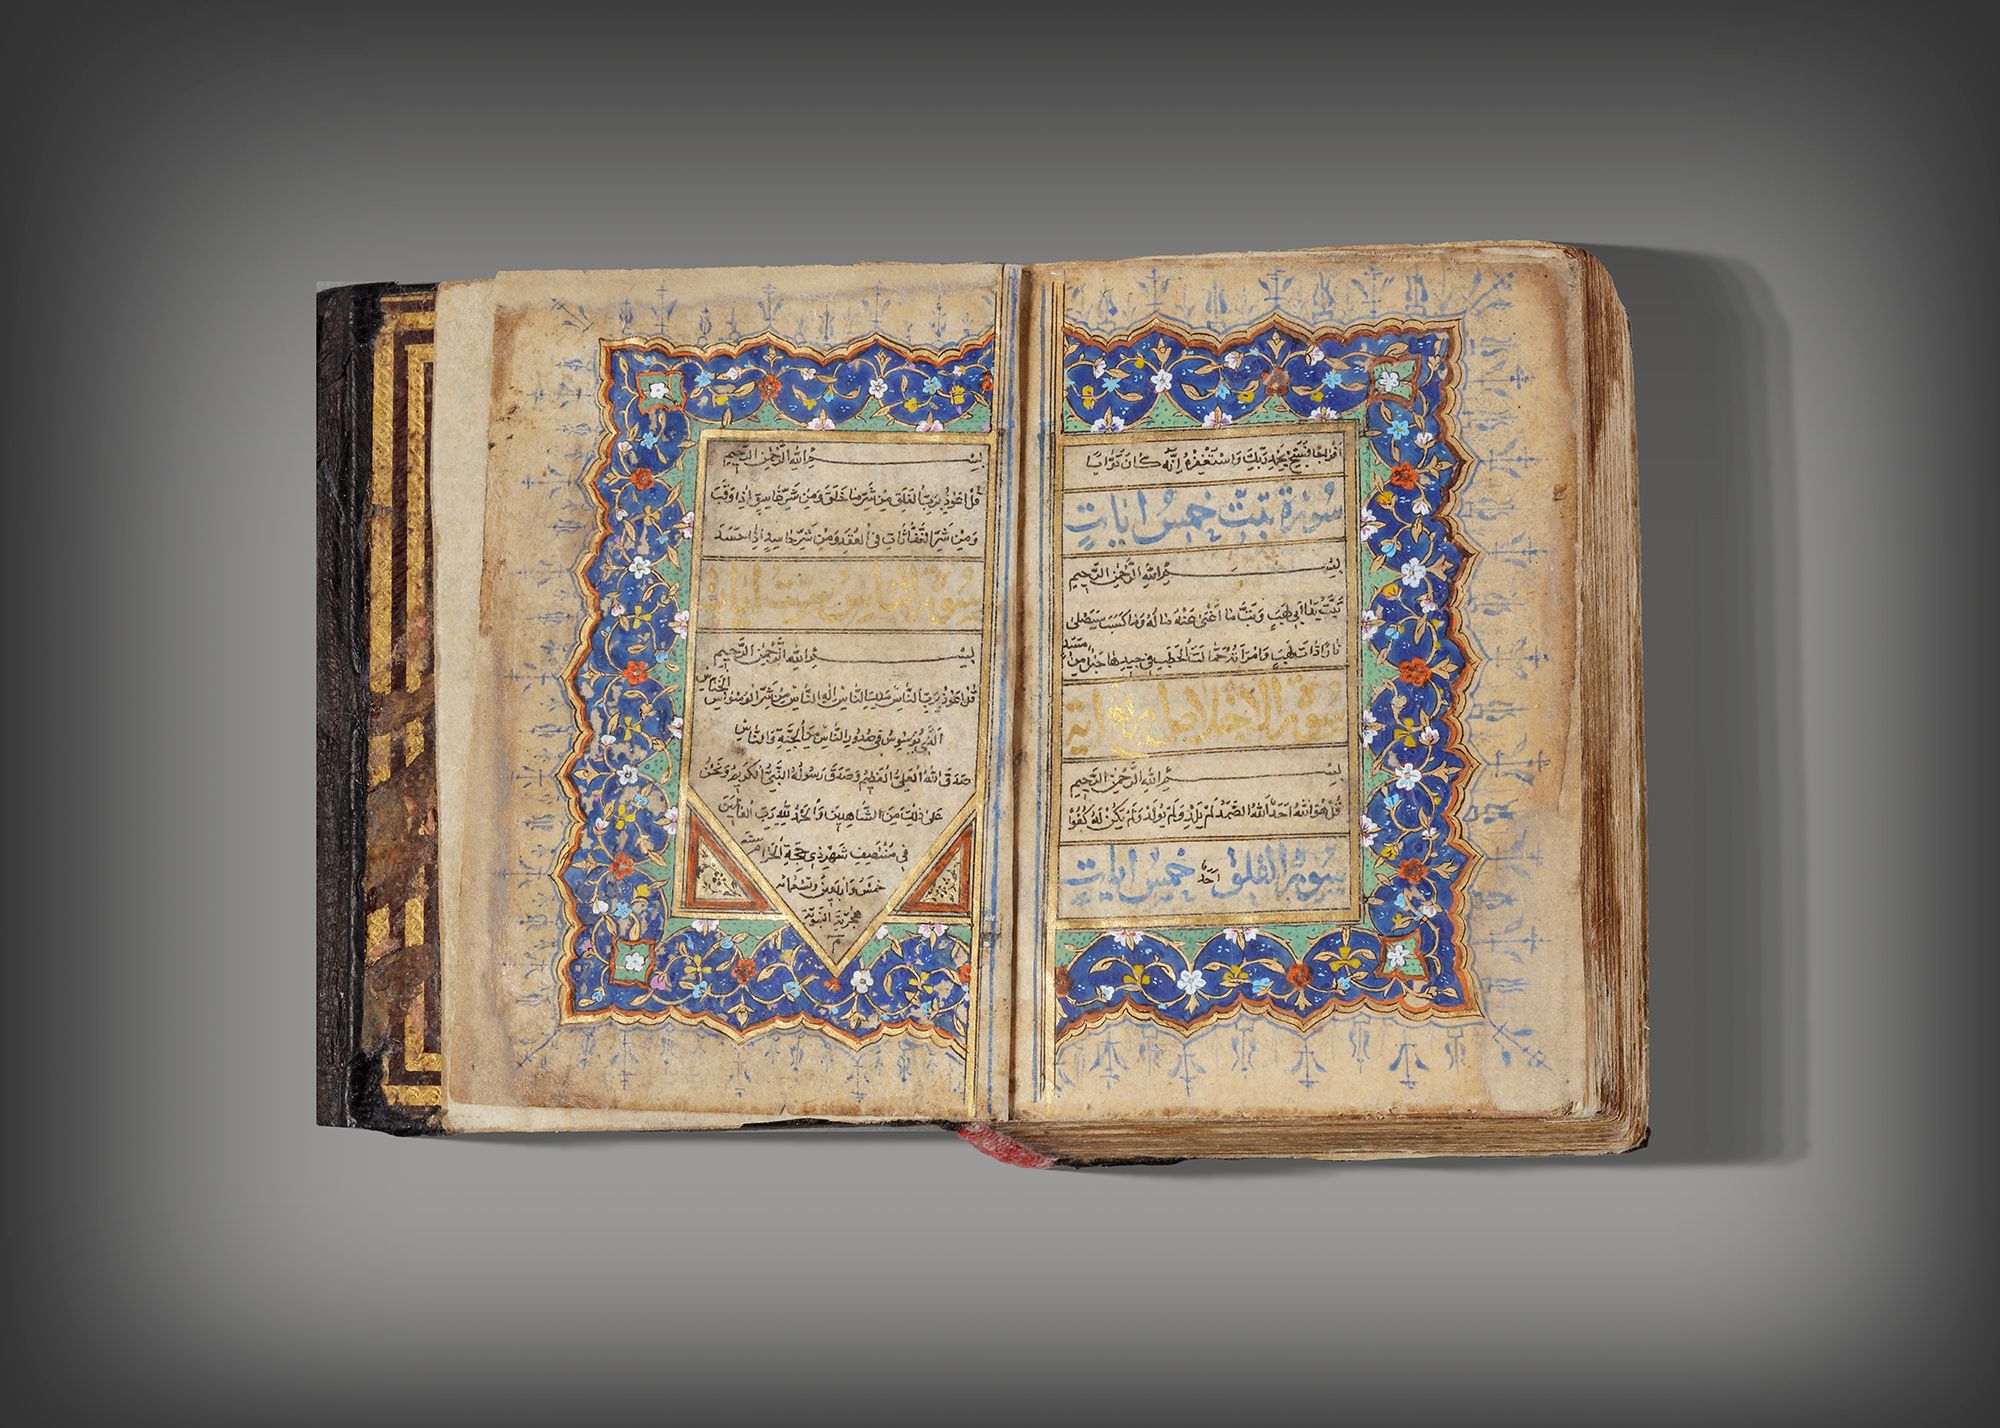 أفواجا فسبح بحمد ربك واستغفره إنه كان توابا
سورة تبت خمس ايات
بسم الله الرحمن الرحيم
تبت يدا أبي لهب وتب ما أغنى عنه ماله وما كسب سيصلى
نارا ذات لهب وامرأته حمالت الحطب في جيدها حبل من مسد
سورة الاخلاص اربع اية
بسم الله الرحمن الرحيم
قل هو الله أحد الله الصمد لم يلد ولم يولد ولم يكن له كفوا
احد
سورة الفلق خمس ايات
بسم الله الرحمن الرحيم
قل أعوذ برب الفلق من شر ما خلق ومن شر غاسق إذا وقب
ومن شر النفاثات في العقد ومن شر حاسد إذا حسد
سورة الناس ست ايات
بسم الله الرحمن الرحيم
قل أعوذ برب الناس ملك الناس إله الناس من شر الوسواس الخناس
الذي يوسوس في صدور الناس من الجنة والناس
صدق الله العلي العظيم وصدق رسوله النبي الكريم ونحن
على ذلك من الشاهدين والحمد لله رب العالمين
في منتصف شهر ذي حجة الحرام سنة
خمس واربعين وتسعمائه
هجرية النبوية